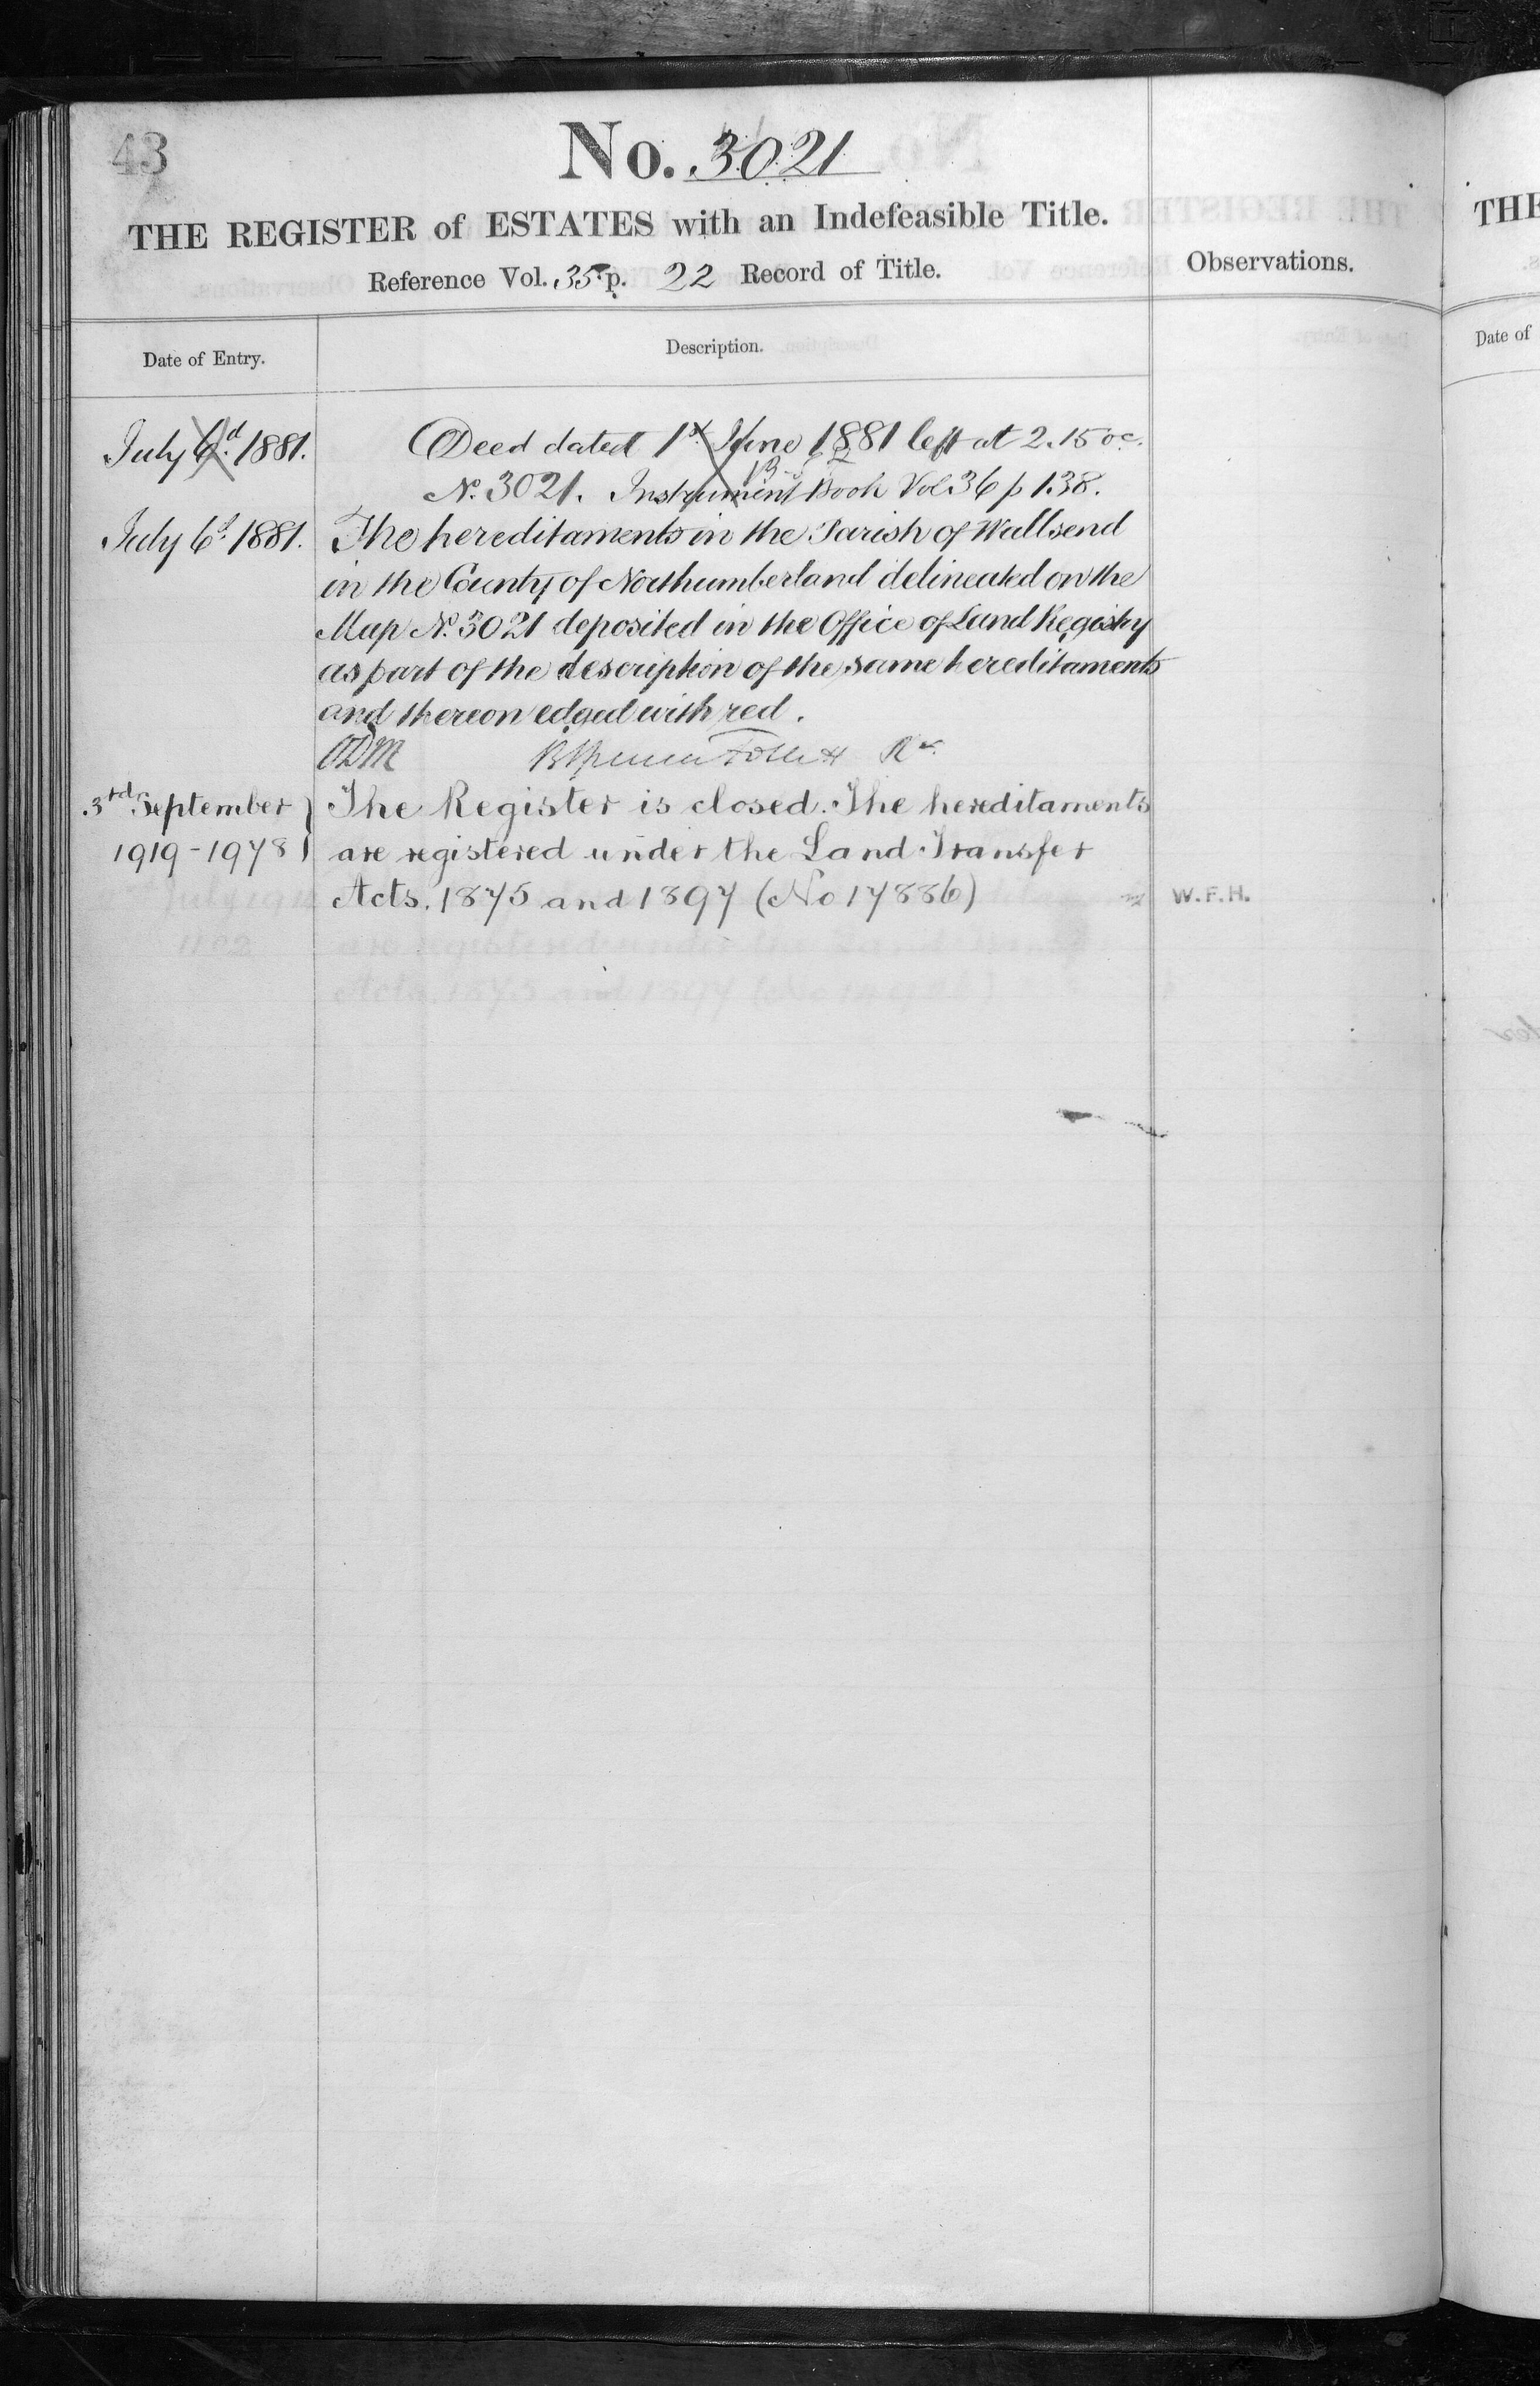 43
No. 3021
THE REGISTER of ESTATES with an Indefeasible Title.
Reference Vol. 35 p. 22 Record of Title.
Observations.
Date of Entry.
Description.
July 6.d 1881.
Deed dated 1st June 1881 left at 2.15 oc.
No. 3021. Instrument Book Vol 36 p 138.
July 6d. 1881.
The hereditaments in the Parish of Wallsend
in the County of Northumberland delineated on the
Map No. 3021 deposited in the Office of Land Registry
as part of the description of the same hereditaments
and thereon edged with red.
Rr.
3rd September
1919-1978
The Register is closed. The hereditaments
are registered under the Land Transfer
Acts, 1875 and 1897 (No 17886)
W.F.H.
THE
Date of